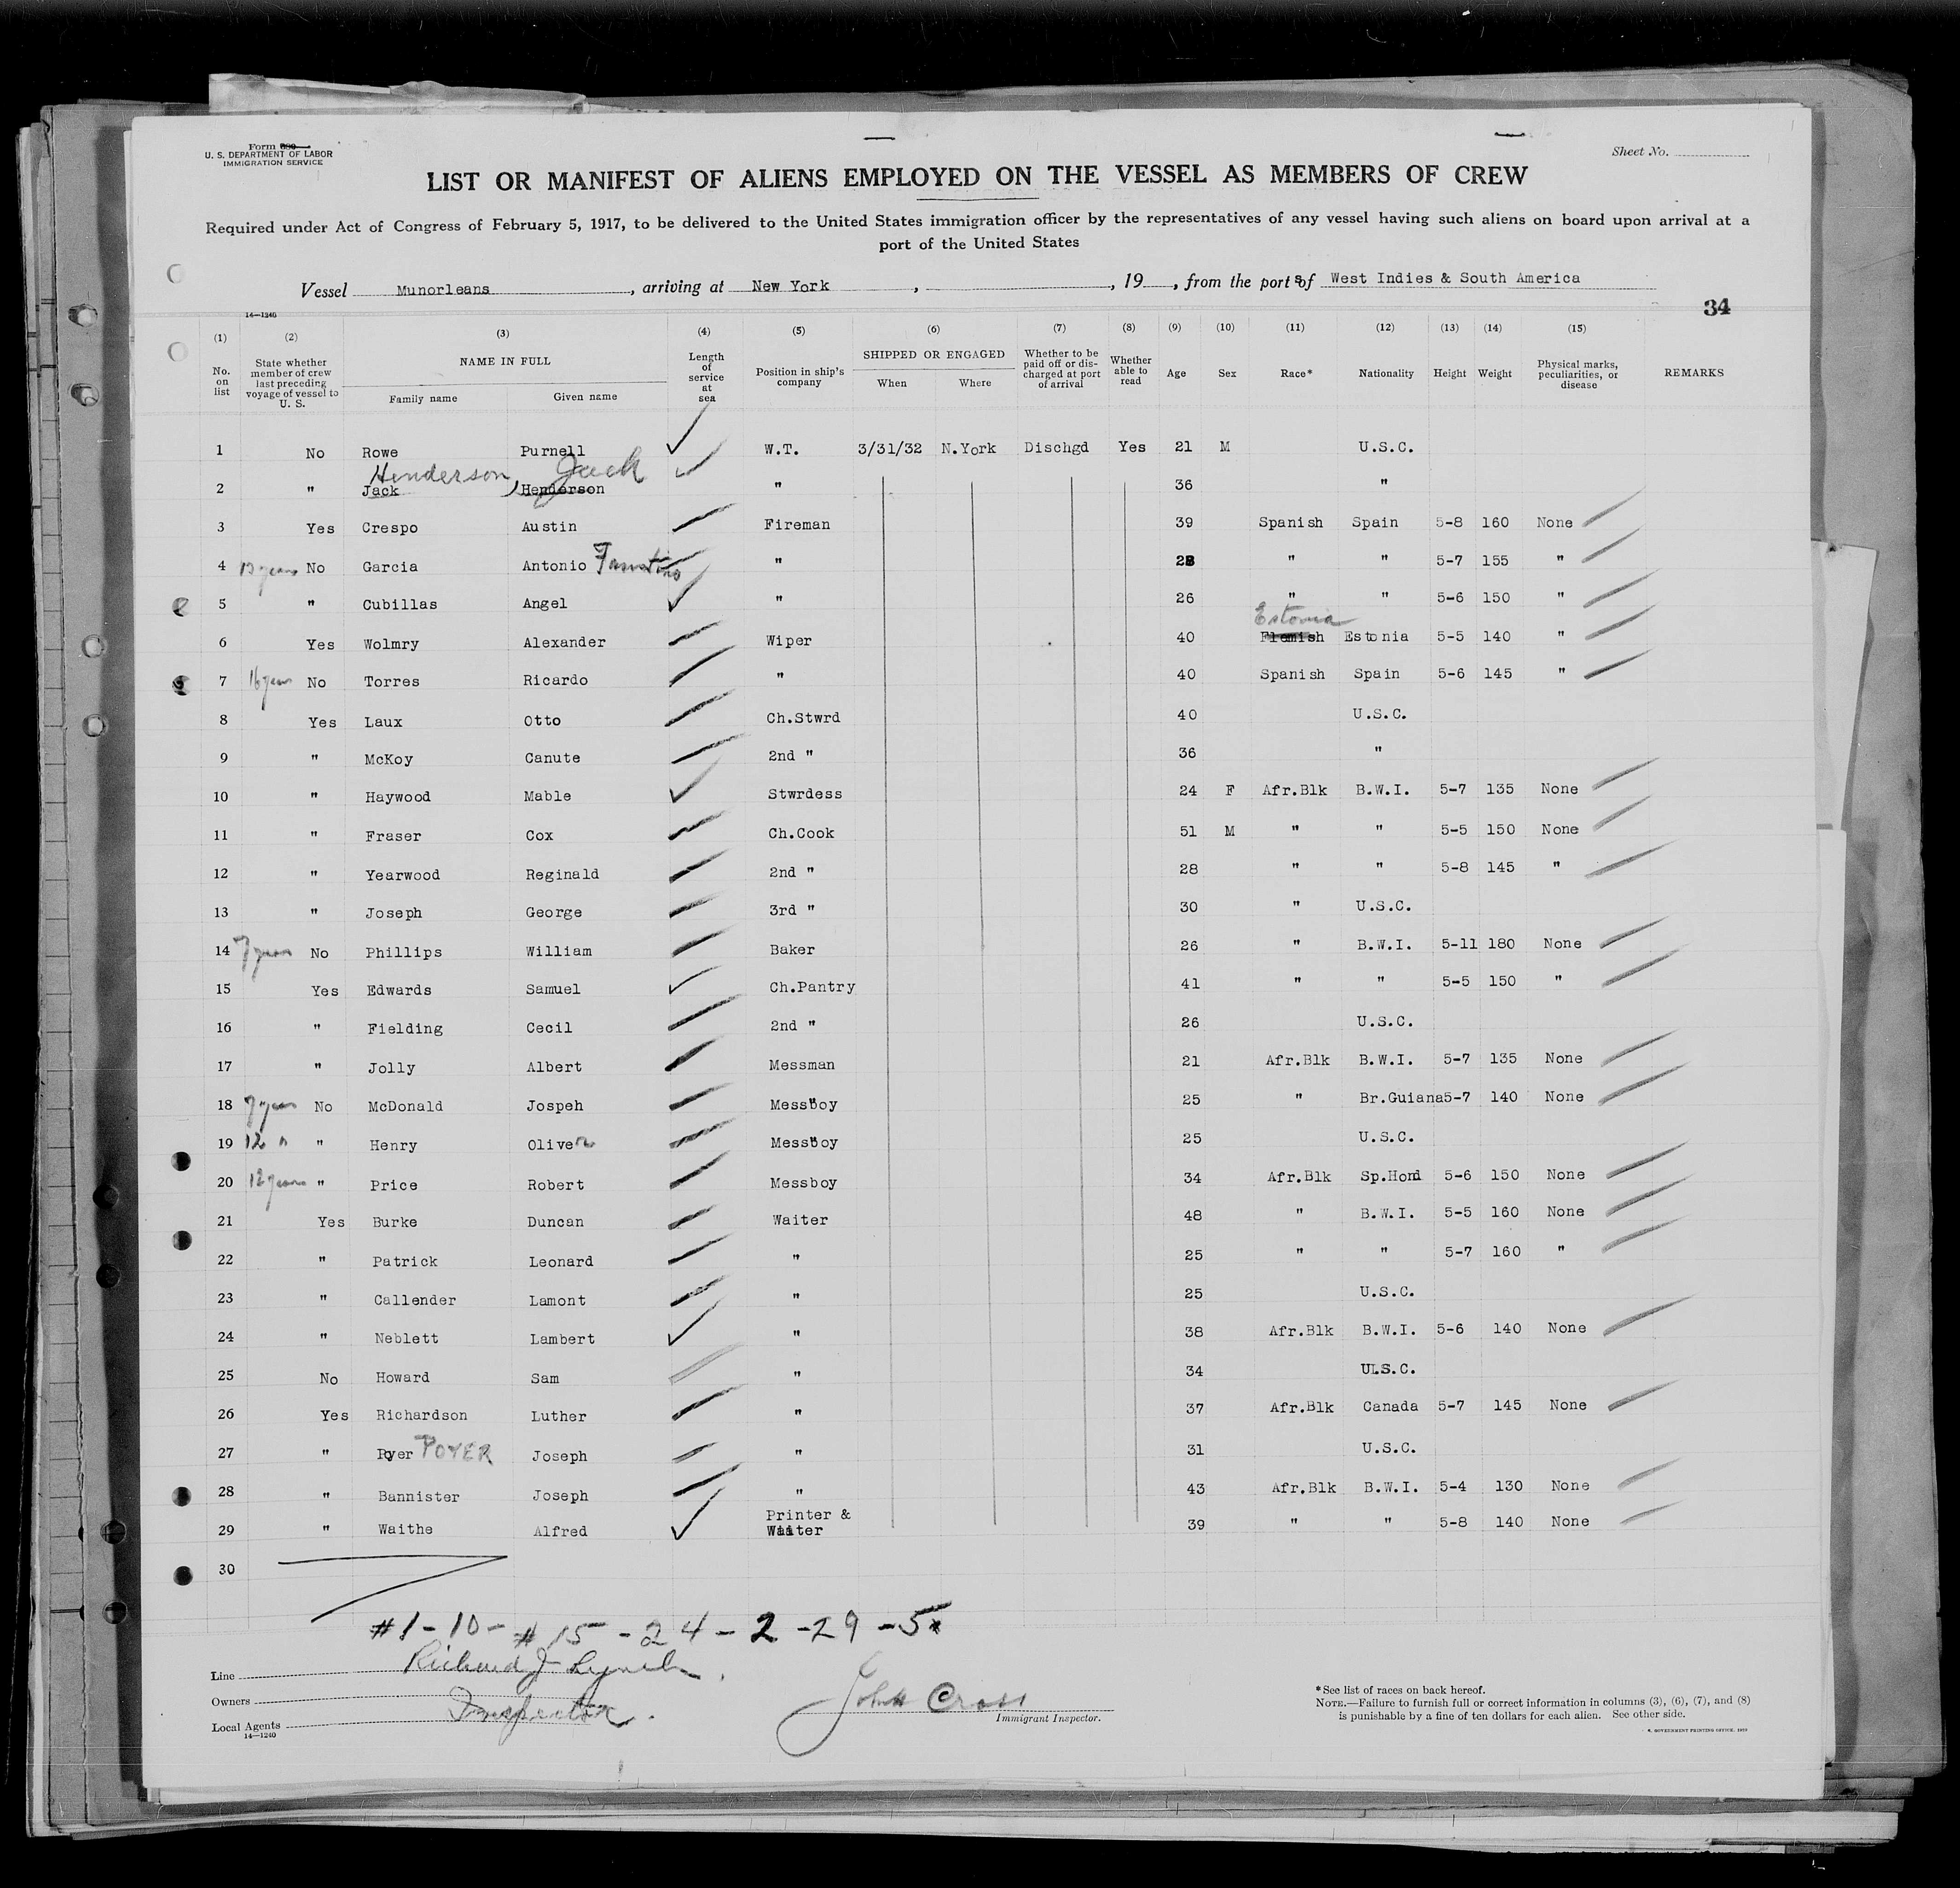 Form 680
U. S. DEPARTMENT OF LABOR
IMMIGRATION SERVICE
Sheet No.
LIST OR MANIFEST OF ALIENS EMPLOYED ON THE VESSEL AS MEMBERS OF CREW
Required under Act of Congress of February 5, 1917, to be delivered to the United States immigration officer by the representatives of any vessel having such aliens on board upon arrival at a
port of the United States
Vessel Munorleans, arriving at New York, , 19 , from the port s of West Indies & South America
34
14—1240
(1) (2) (3) (4) (5) (6) (7) (8) (9) (10) (11) (12) (13) (14) (15)
No. on list State whether member of crew last preceding voyage of vessel to U. S. NAME IN FULL Family name Given name Length of service at sea Position in ship's company SHIPPED OR ENGAGED When Where Whether to be paid off or discharged at port of arrival Whether able to read Age Sex Race* Nationality Height Weight Physical marks, peculiarities, or disease REMARKS
1 No Rowe Purnell W.T. 3/31/32 N.York Dischgd Yes 21 M U.S.C.
Henderson, Jack
2 " Jack Henderson " 36 "
3 Yes Crespo Austin Fireman 39 Spanish Spain 5-8 160 None
4 13 years No Garcia Antonio Faustino " 28 " " 5-7 155 "
5 " Cubillas Angel " 26 " " 5-6 150 "
Estonia
6 Yes Wolmry Alexander Wiper 40 Flemish Estonia 5-5 140 "
7 16 years No Torres Ricardo " 40 Spanish Spain 5-6 145 "
8 Yes Laux Otto Ch.Stwrd 40 U.S.C.
9 " McKoy Canute 2nd " 36 "
10 " Haywood Mable Stwrdess 24 F Afr.Blk B.W.I. 5-7 135 None
11 " Fraser Cox Ch.Cook 51 M " " 5-5 150 None
12 " Yearwood Reginald 2nd " 28 " " 5-8 145 "
13 " Joseph George 3rd " 30 " U.S.C.
14 7 years No Phillips William Baker 26 " B.W.I. 5-11 180 None
15 Yes Edwards Samuel Ch.Pantry 41 " " 5-5 150 "
16 " Fielding Cecil 2nd " 26 U.S.C.
17 " Jolly Albert Messman 21 Afr.Blk B.W.I. 5-7 135 None
18 7 years No McDonald Jospeh Messboy 25 " Br.Guiana 5-7 140 None
19 12 " " Henry Oliver Messboy 25 U.S.C.
20 12 years " Price Robert Messboy 34 Afr.Blk Sp.Hond 5-6 150 None
21 Yes Burke Duncan Waiter 48 " B.W.I. 5-5 160 None
22 " Patrick Leonard " 25 " " 5-7 160 "
23 " Callender Lamont " 25 U.S.C.
24 " Neblett Lambert " 38 Afr.Blk B.W.I. 5-6 140 None
25 No Howard Sam " 34 U.S.C.
26 Yes Richardson Luther " 37 Afr.Blk Canada 5-7 145 None
27 " Pyer POYER Joseph " 31 U.S.C.
28 " Bannister Joseph " 43 Afr.Blk B.W.I. 5-4 130 None
29 " Waithe Alfred Printer & Waiter 39 " " 5-8 140 None
30
#1-10- #15-24-2-29-5
Line Richard J Lynch
Owners
Inspector
Local Agents
14—1240
John Cross
Immigrant Inspector.
*See list of races on back hereof.
NOTE.—Failure to furnish full or correct information in columns (3), (6), (7), and (8)
is punishable by a fine of ten dollars for each alien. See other side.
GOVERNMENT PRINTING OFFICE